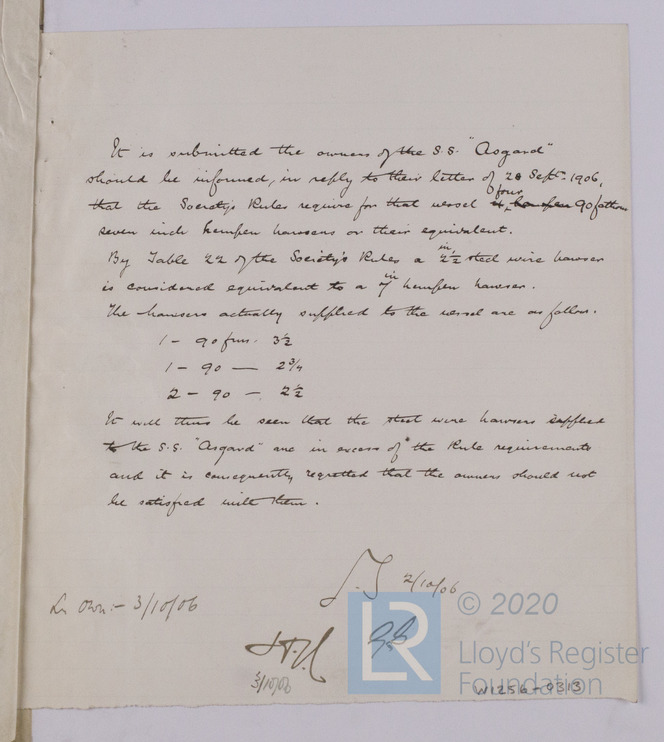 It is submitted the owners of the S.S. "Asgard"
should be informed, in reply to their letter of 28 Sept. 1906,
that the Society's Rules require for that vessel four 90 fathom
seven inch hempen hawsers or their equivalent.
By Table 22 of the Society's Rules a 2½ in steel wire hawser
is considered equivalent to a 7 in hempen hawser.
The hawsers actually supplied to the vessel are as follow.
1 - 90 fms. 3½
1 - 90 — 2¾
2 - 90 — 2½
It will thus be seen that the steel wire hawsers supplied
to the S.S. "Asgard" are in excess of the Rule requirements
and it is consequently regretted that the owners should not
be satisfied with them.
2/10/06
3/10/06
3/10/06
LR
© 2020
Lloyd's Register
Foundation
W1256-0313